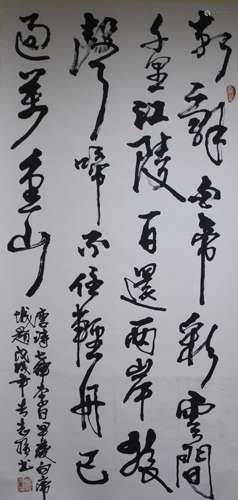 朝辭白帝彩雲間
千里江陵一日還兩岸猿
聲啼不住輕舟已
過萬重山
唐詩七絕李白早發白帝
城